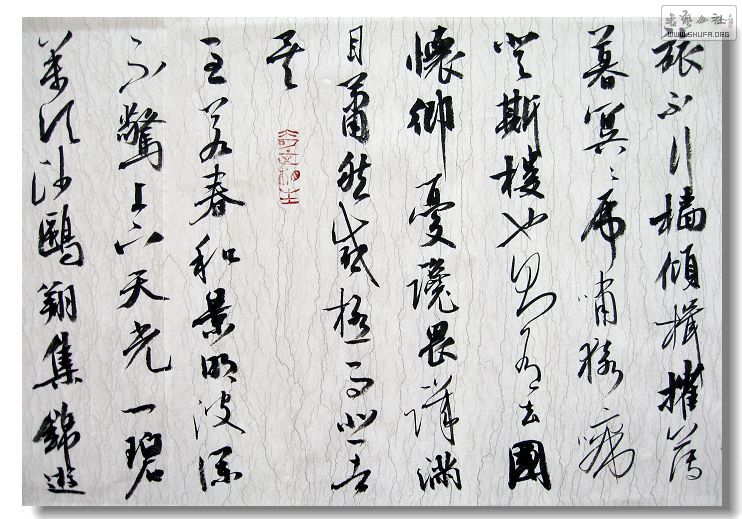 旅不行檣傾楫摧薄
暮冥〻虎嘯猿啼
登斯樓也則有去國
懷鄉憂讒畏譏滿
目蕭然感極而悲者
矣
至若春和景明波瀾
不驚上下天光一碧
萬頃沙鷗翔集錦遊
书艺公社
WWW.SHUFA.ORG